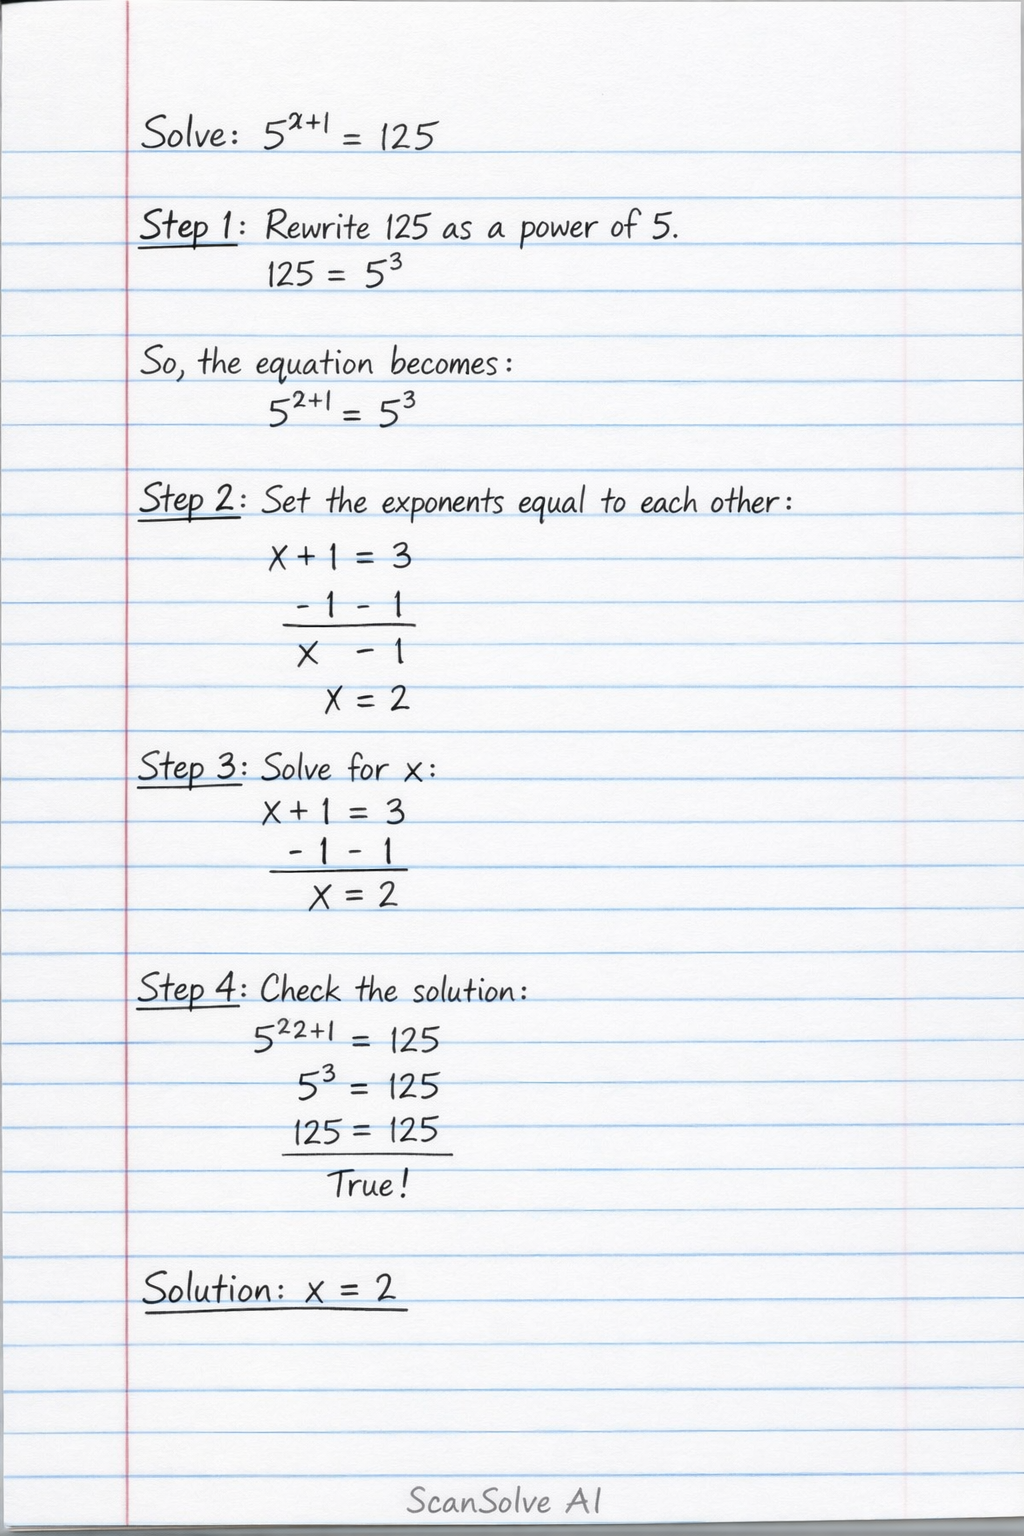 Solve: 5^{x+1} = 125
Step 1: Rewrite 125 as a power of 5.
125 = 5³
So, the equation becomes:
5^{2+1} = 5³
Step 2: Set the exponents equal to each other:
x + 1 = 3
- 1 - 1
x - 1
x = 2
Step 3: Solve for x:
x + 1 = 3
- 1 - 1
x = 2
Step 4: Check the solution:
5^{22+1} = 125
5³ = 125
125 = 125
True!
Solution: x = 2
ScanSolve AI